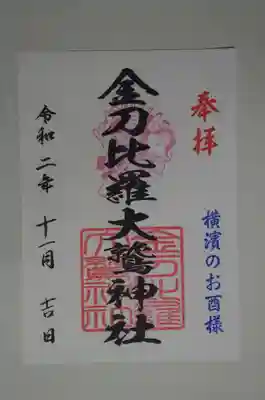 奉拝
横濱のお酉様
金刀比羅大鷲神社
令和二年 十一月 吉日